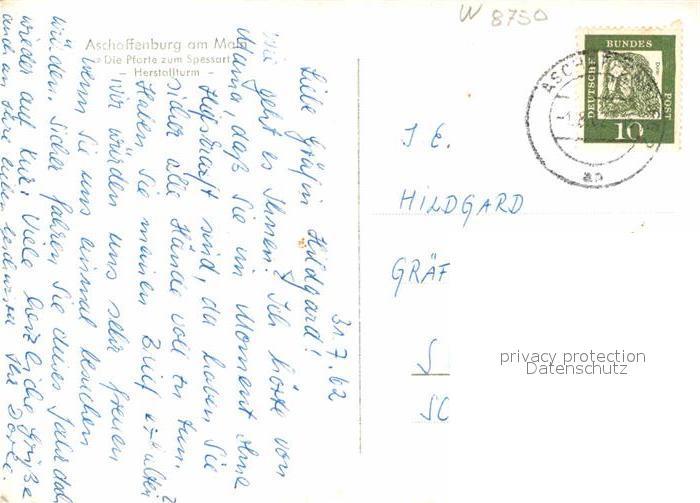 W 8750
Aschaffenburg am Main
Die Pforte zum Spessart
Herstallturm
31.7.62
Liebe Gräfin Hildgard!
Wie geht es Ihnen? Ich hörte von
Mama, daß Sie im Moment ohne
Hilfskraft sind, da haben Sie
sicher alle Hände voll zu tun.
Haben Sie meinen Brief erhalten?
Wir würden uns sehr freuen
wenn Sie uns einmal besuchen
würden. Sicher fahren Sie dieses Jahr doch
wieder auf Kur! Viele herzliche Grüße
auch an Ihre lieben Ihre Dorle.
DEUTSCHE
BUNDES
POST
10
ASCHAFFENBURG
-1.8.
ao
I E.
HILDGARD
GRÄF
S
SC
privacy protection
Datenschutz